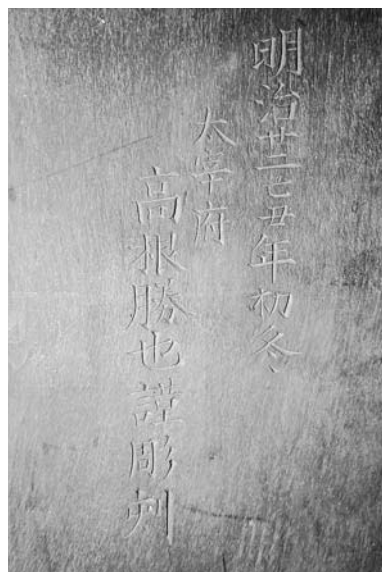 明治廿二己丑年初冬
太宰府
高根勝也謹彫刻